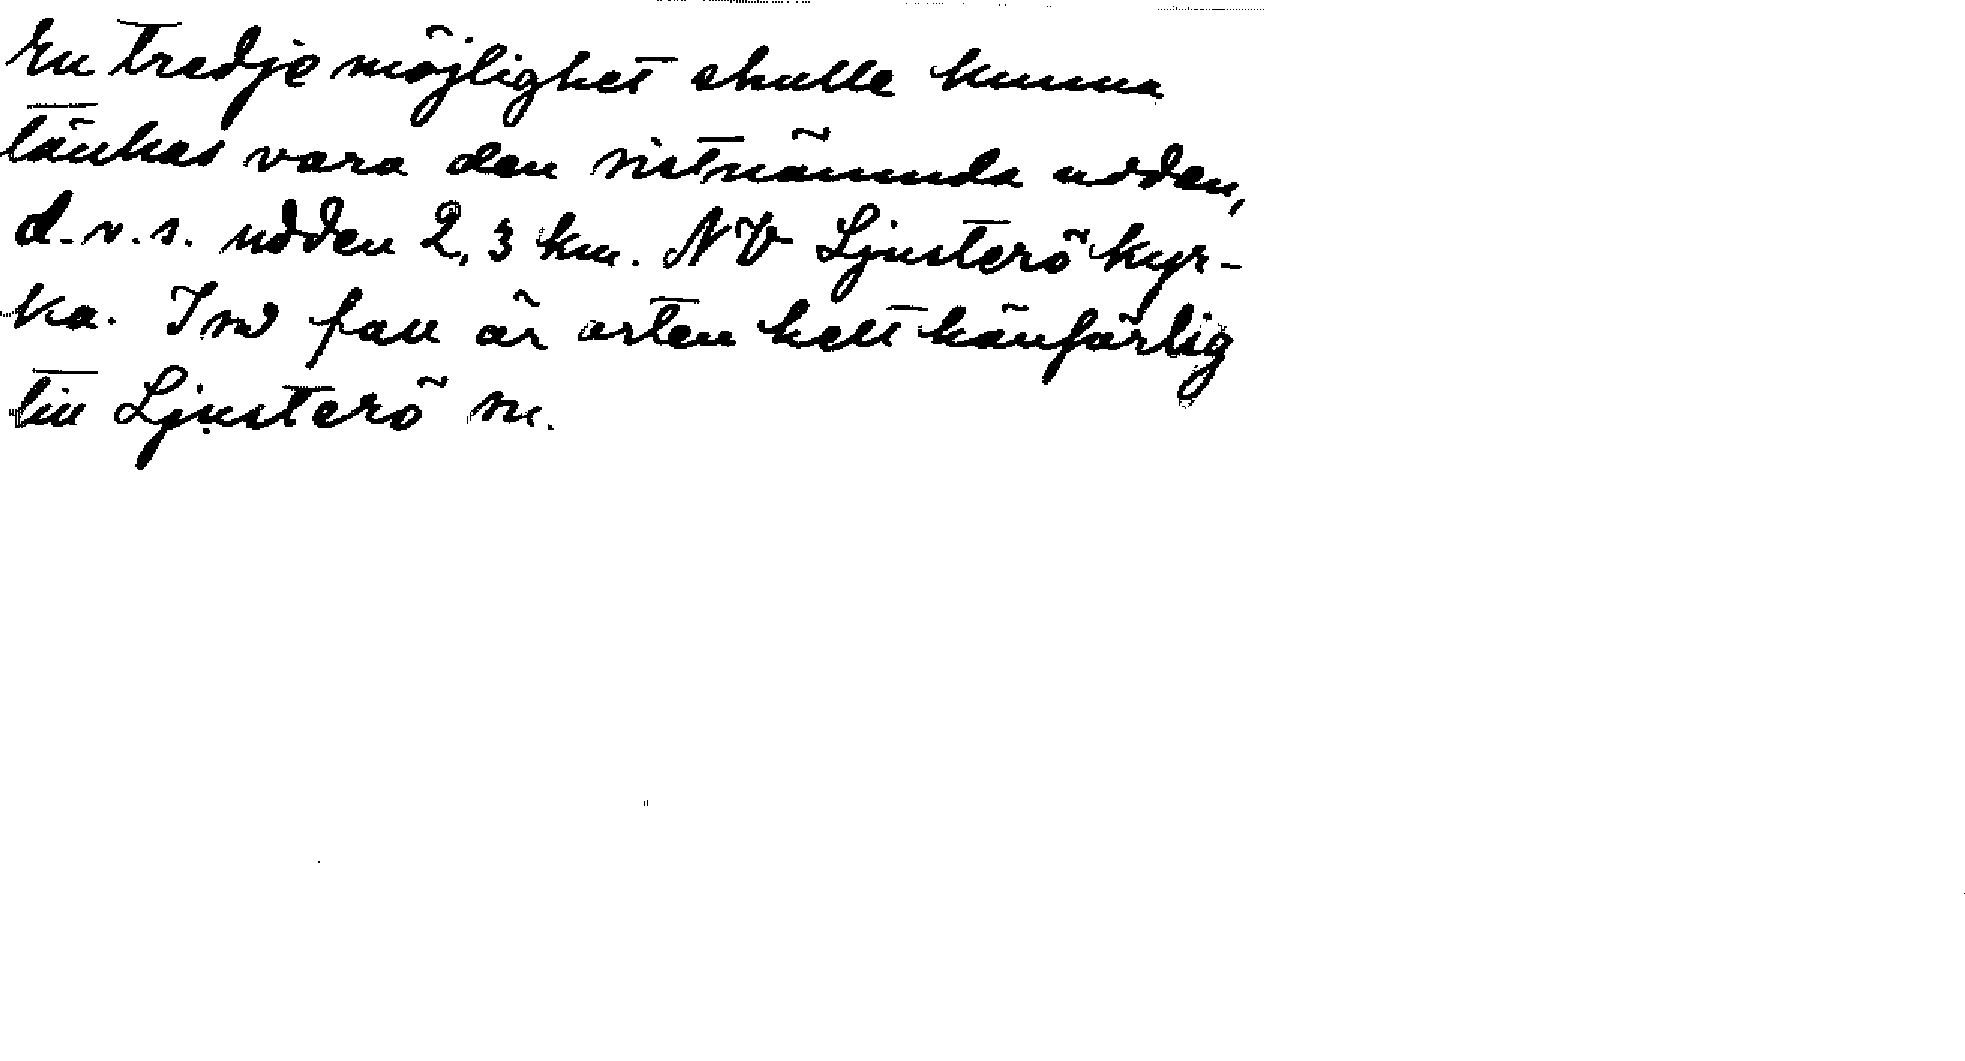 En tredje möjlighet skulle kunna
tänkas vara den sistnämnda udden,
d.v.s. udden 2,3 km. NV Ljusterö kyr-
ka. I så fall är orten helt hänförlig
till Ljusterö sn.